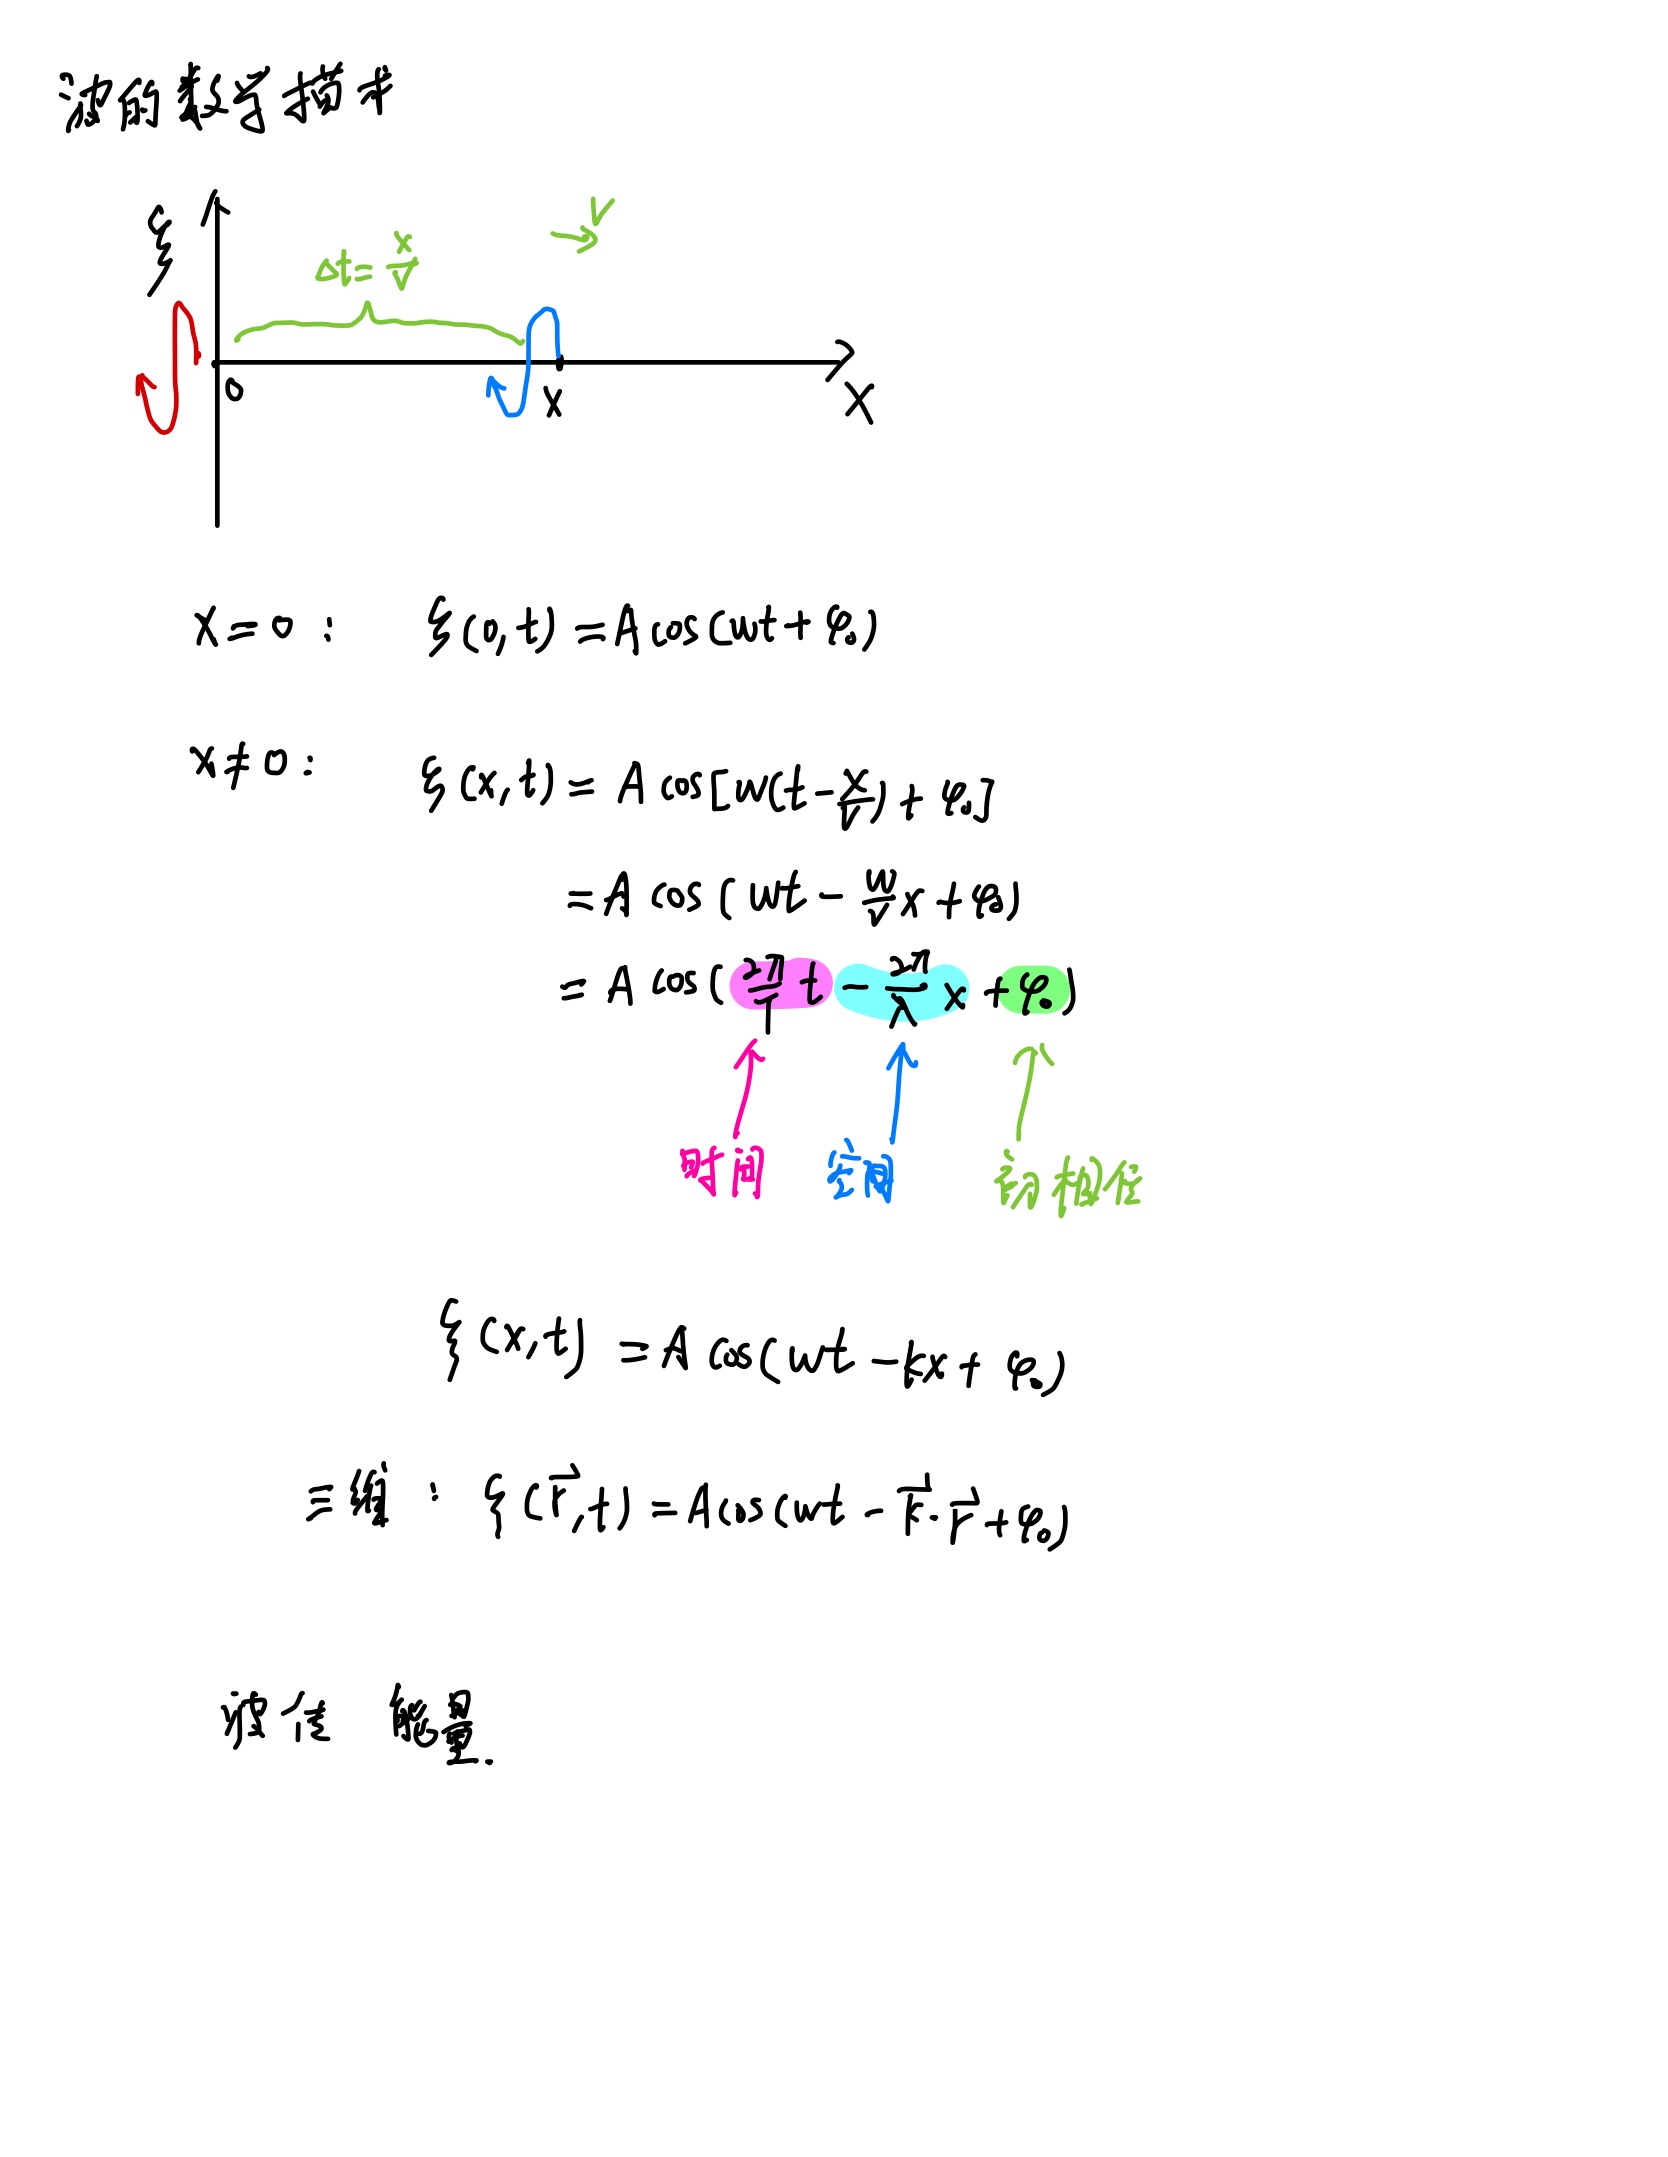 波的数学描术
ξ
v
Δt = x/v
0
x
X
x = 0 : ξ(0, t) = A cos(wt + φ₀)
x ≠ 0 : ξ(x, t) = A cos[w(t - x/v) + φ₀]
= A cos(wt - w/v x + φ₀)
= A cos(2π/T t - 2π/λ x + φ₀)
时间 空间 初相位
ξ(x, t) = A cos(wt - kx + φ₀)
三维 : ξ(r⃗, t) = A cos(wt - k⃗·r⃗ + φ₀)
波传 能量.